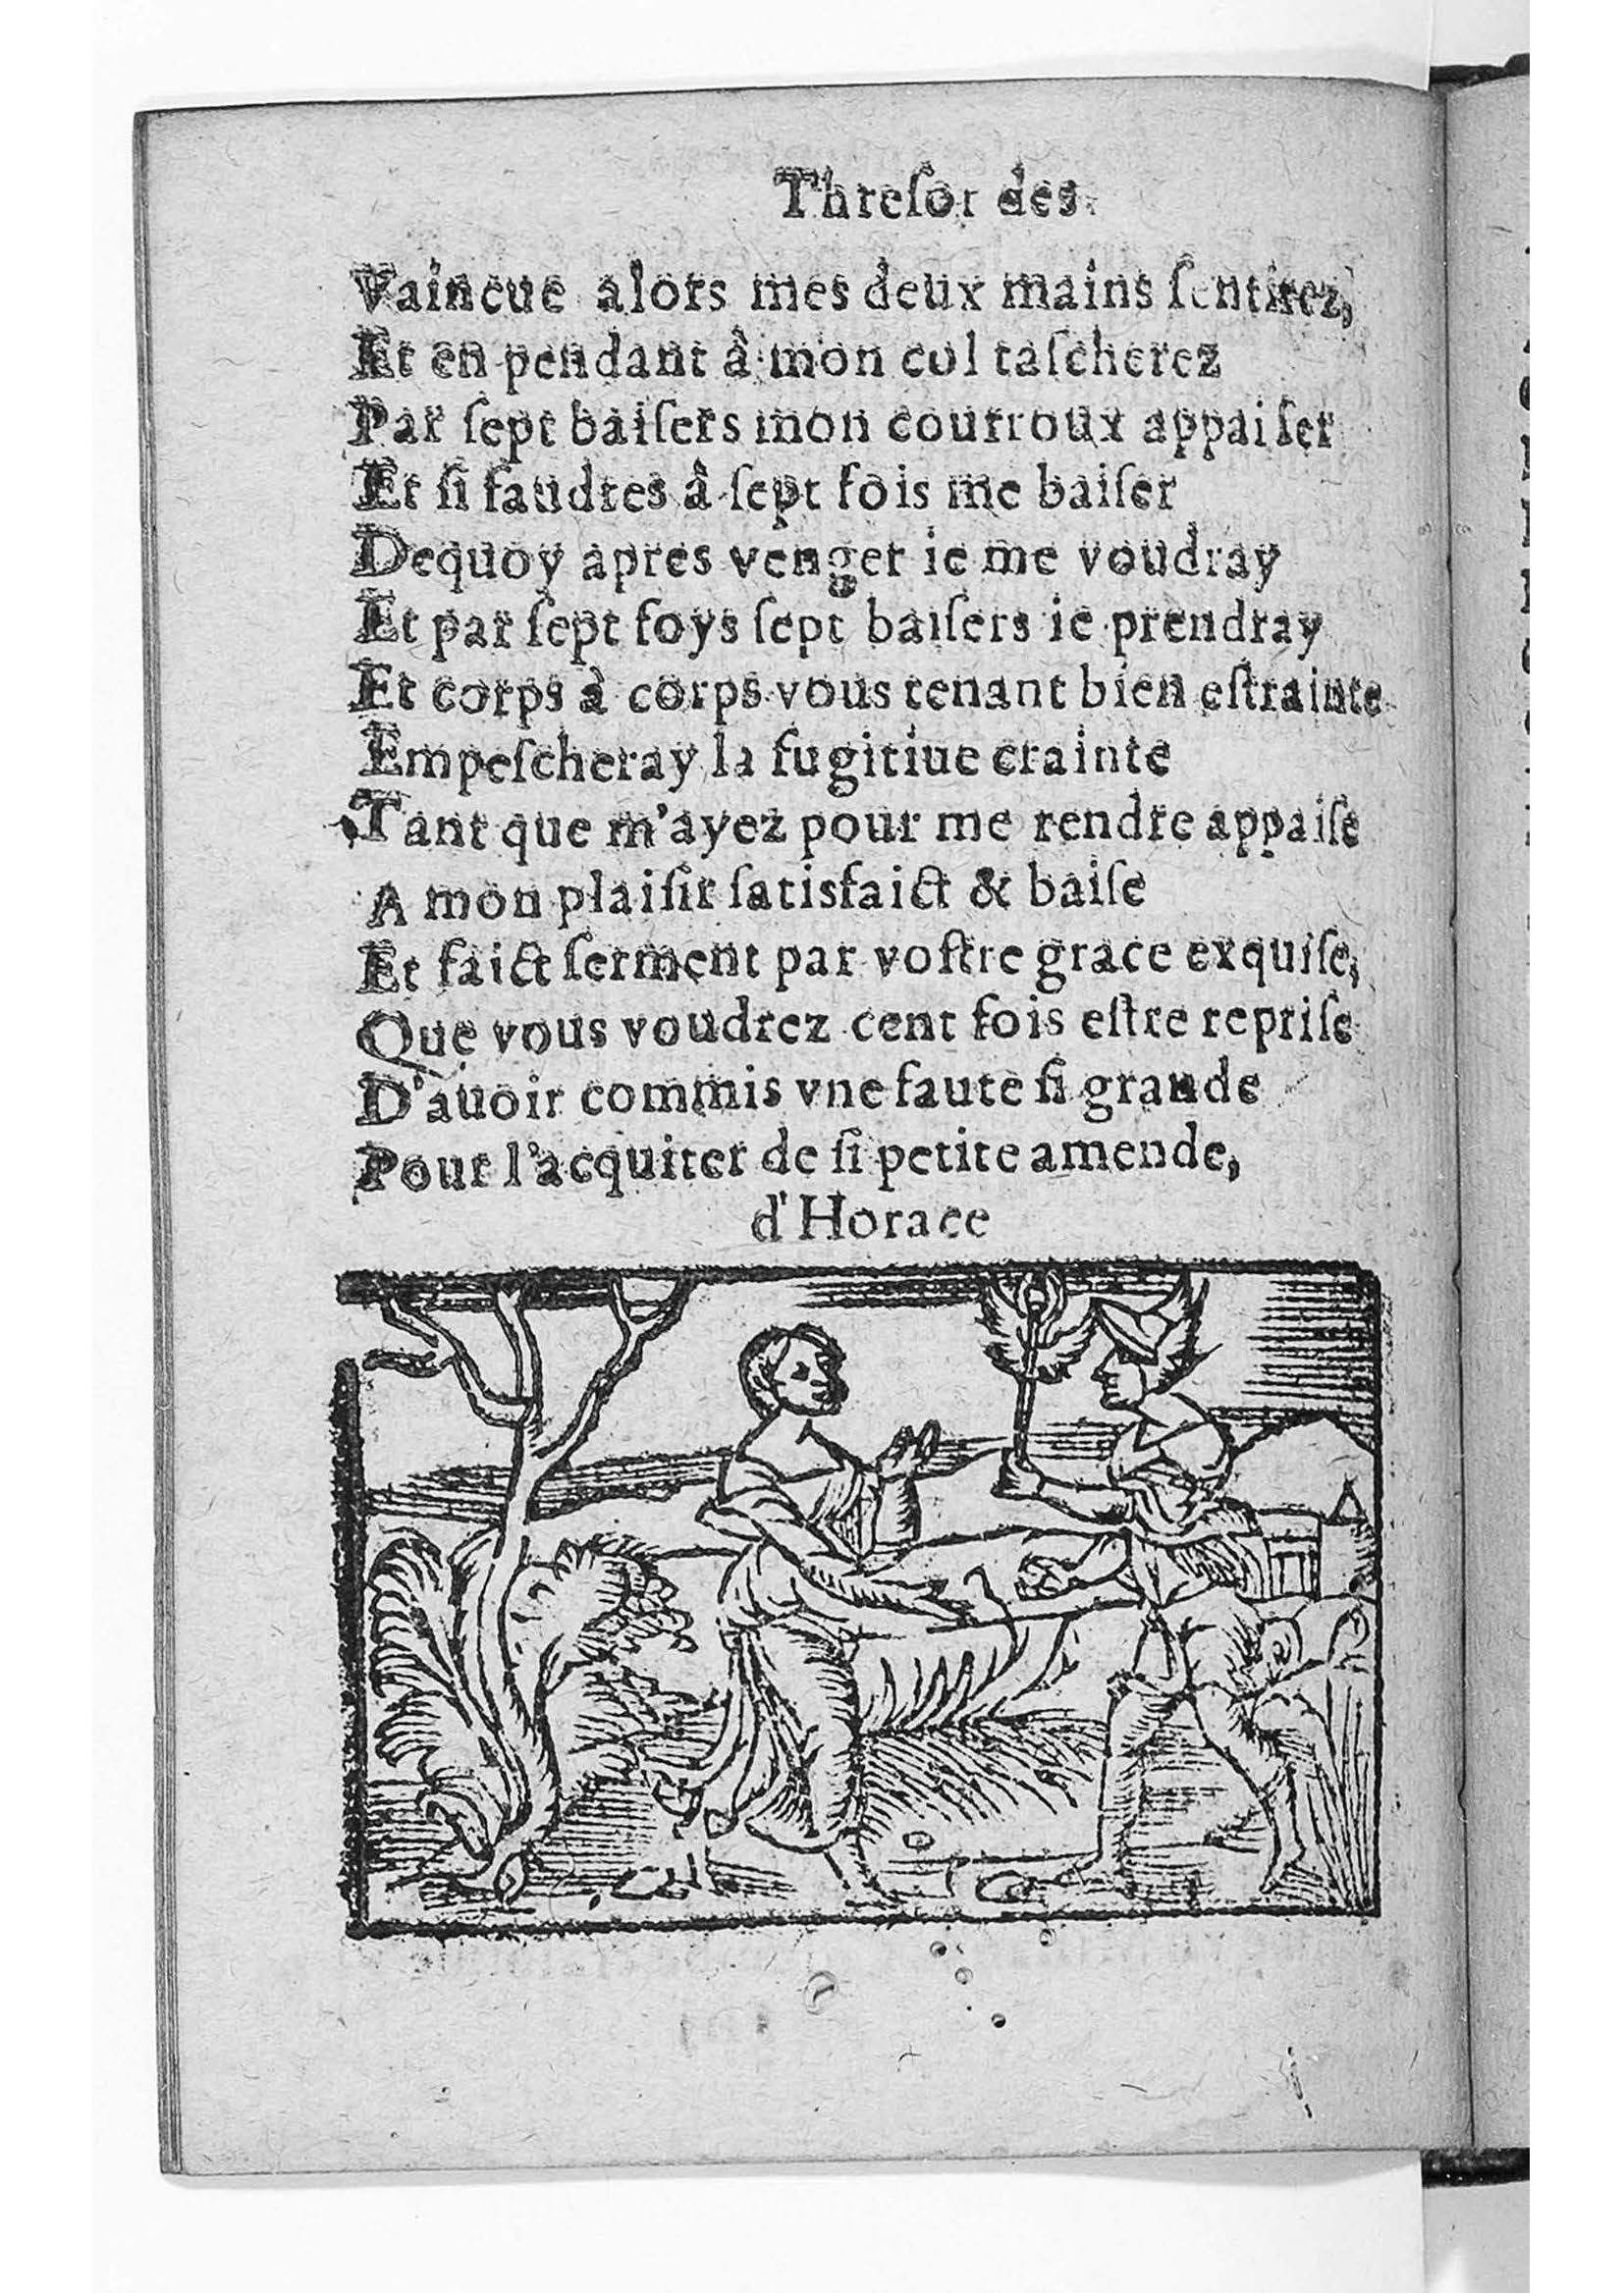 Threſor des
Vaincue alors mes deux mains ſentirez,
Et en pendant à mon col taſcherez
Par ſept baiſers mon courroux appaiſer
Et ſi faudres à ſept fois me baiſer
Dequoy apres venger ie me voudray
Et par ſept foys ſept baiſers ie prendray
Et corps à corps vous tenant bien eſtrainte
Empeſcheray la fugitiue crainte
Tant que m'ayez pour me rendre appaiſe
A mon plaiſir ſatisfaict & baiſe
Et faict ſerment par voſtre grace exquiſe,
Que vous voudrez cent fois eſtre repriſe
D'auoir commis vne faute ſi grande
Pour l'acquiter de ſi petite amende,
d'Horace